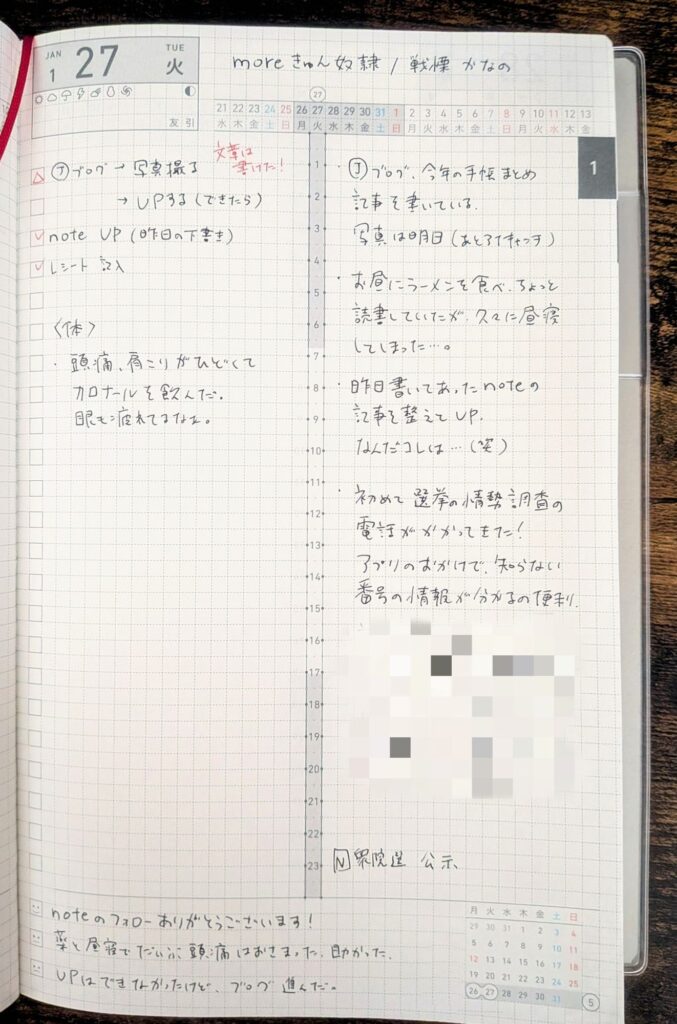 JAN
1
27
TUE
火
友引
moreきゅん奴隷 / 戦慄かなの
27
21 22 23 24 25 26 27 28 29 30 31 1 2 3 4 5 6 7 8 9 10 11 12 13
水 木 金 土 日 月 火 水 木 金 土 日 月 火 水 木 金 土 日 月 火 水 木 金
1
文章は
書けた!
Ⓙブログ → 写真撮る
→ UPする(できたら)
note UP (昨日の下書き)
レシート 記入
〈体〉
・頭痛、肩こりがひどくて
カロナールを飲んだ.
眼も疲れてるなぁ。
1
2
3
4
5
6
7
8
9
10
11
12
13
14
15
16
17
18
19
20
21
22
23
・Ⓙブログ、今年の手帳まとめ
記事を書いている.
写真は明日(あとアイキャッチ)
・お昼にラーメンを食べ、ちょっと
読書していたが、久々に昼寝
してしまった…。
・昨日書いてあったnoteの
記事を整えてUP.
なんだコレは…(笑)
・初めて選挙の情勢調査の
電話がかかってきた!
アプリのおかげで、知らない
番号の情報が分かるの便利.
N 衆院選 公示、
noteのフォローありがとうございます!
薬と昼寝でだいぶ頭痛はおさまった、助かった.
UPはできなかったけど、ブログ進んだ。
月 火 水 木 金 土 日
29 30 31 1 2 3 4
5 6 7 8 9 10 11
12 13 14 15 16 17 18
19 20 21 22 23 24 25
26 27 28 29 30 31
5